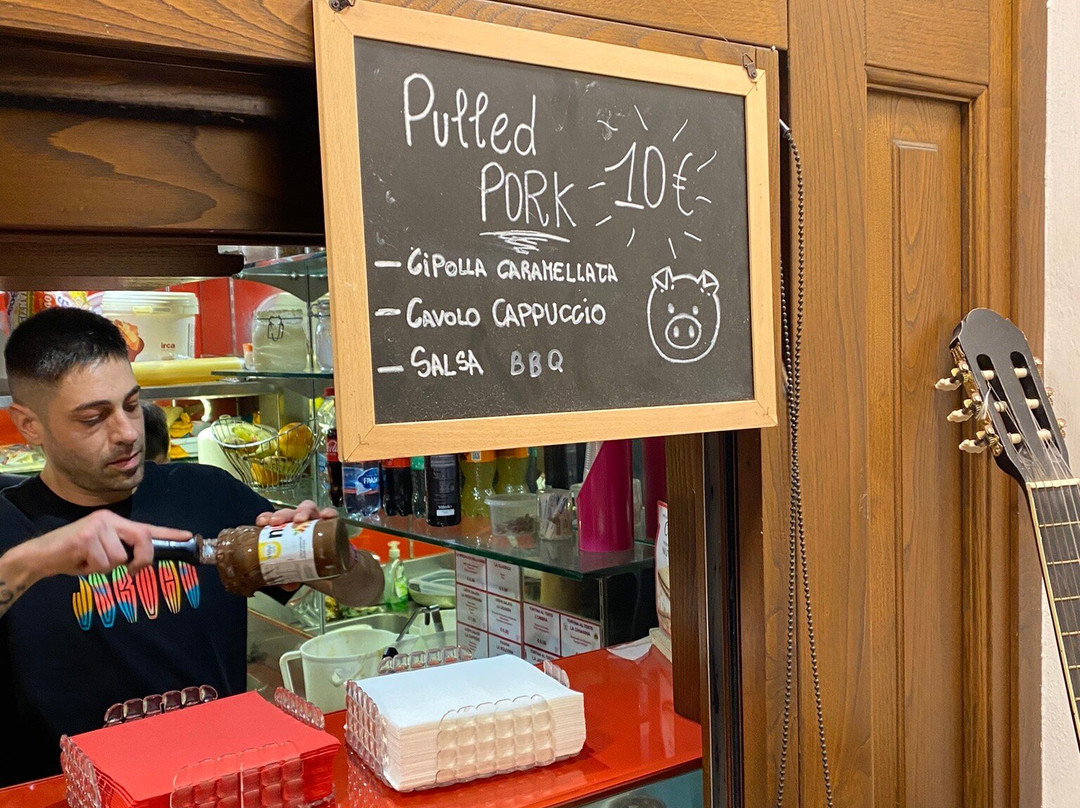 Pulled
PORK 10€
- CIPOLLA CARAMELLATA
- CAVOLO CAPPUCCIO
- SALSA BBQ
irca